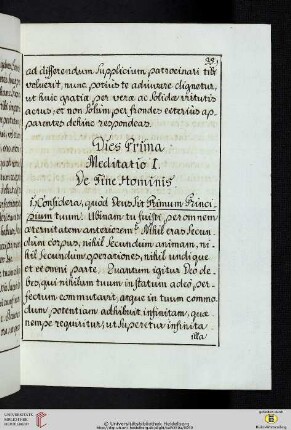 39.
ad differendum Supplicium patrocinari tibi
voluerit, nunc potius te adiuvare dignetur,
ut huic gratiæ per veræ ac Solidæ virtutis
actus, et non Solum per frondes exterius ap-
parentes dehinc respondeas.
Dies Prima
Meditatio I.
De Fine Hominis.
1. Considera, quòd Deus Sit Primum Princi-
pium tuum. Ubinam tu fuisti per omnem
æternitatem anteriorem? Nihil eras Secun-
dum corpus, nihil Secundum animam, ni-
hil Secundum operationes, nihil undique
et ex omni parte. Quantum igitur Deo de-
bes, qui nihilum tuum in Statum adeò per-
fectum commutavit, atque in tuum commo-
dum potentiam adhibuit infinitam, quæ
nempe requiritur, ut Superetur infinita
illa
UNIVERSITÄTS-
BIBLIOTHEK
HEIDELBERG
© Universitätsbibliothek Heidelberg